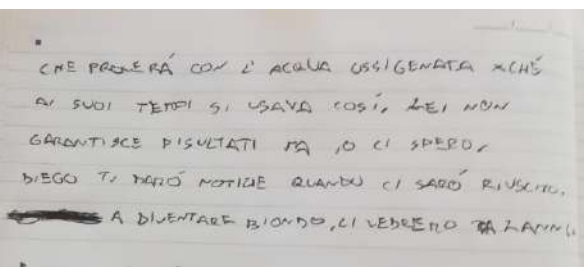 CHE PROVERÁ CON L' ACQUA OSSIGENATA XCHÉ
AI SUOI TEMPI SI USAVA COSÍ, LEI NON
GARANTISCE RISULTATI MA IO CI SPERO,
DIEGO TI DARÓ NOTIZIE QUANDO CI SARÓ RIUSCITO,
A DIVENTARE BIONDO, CI VEDREMO